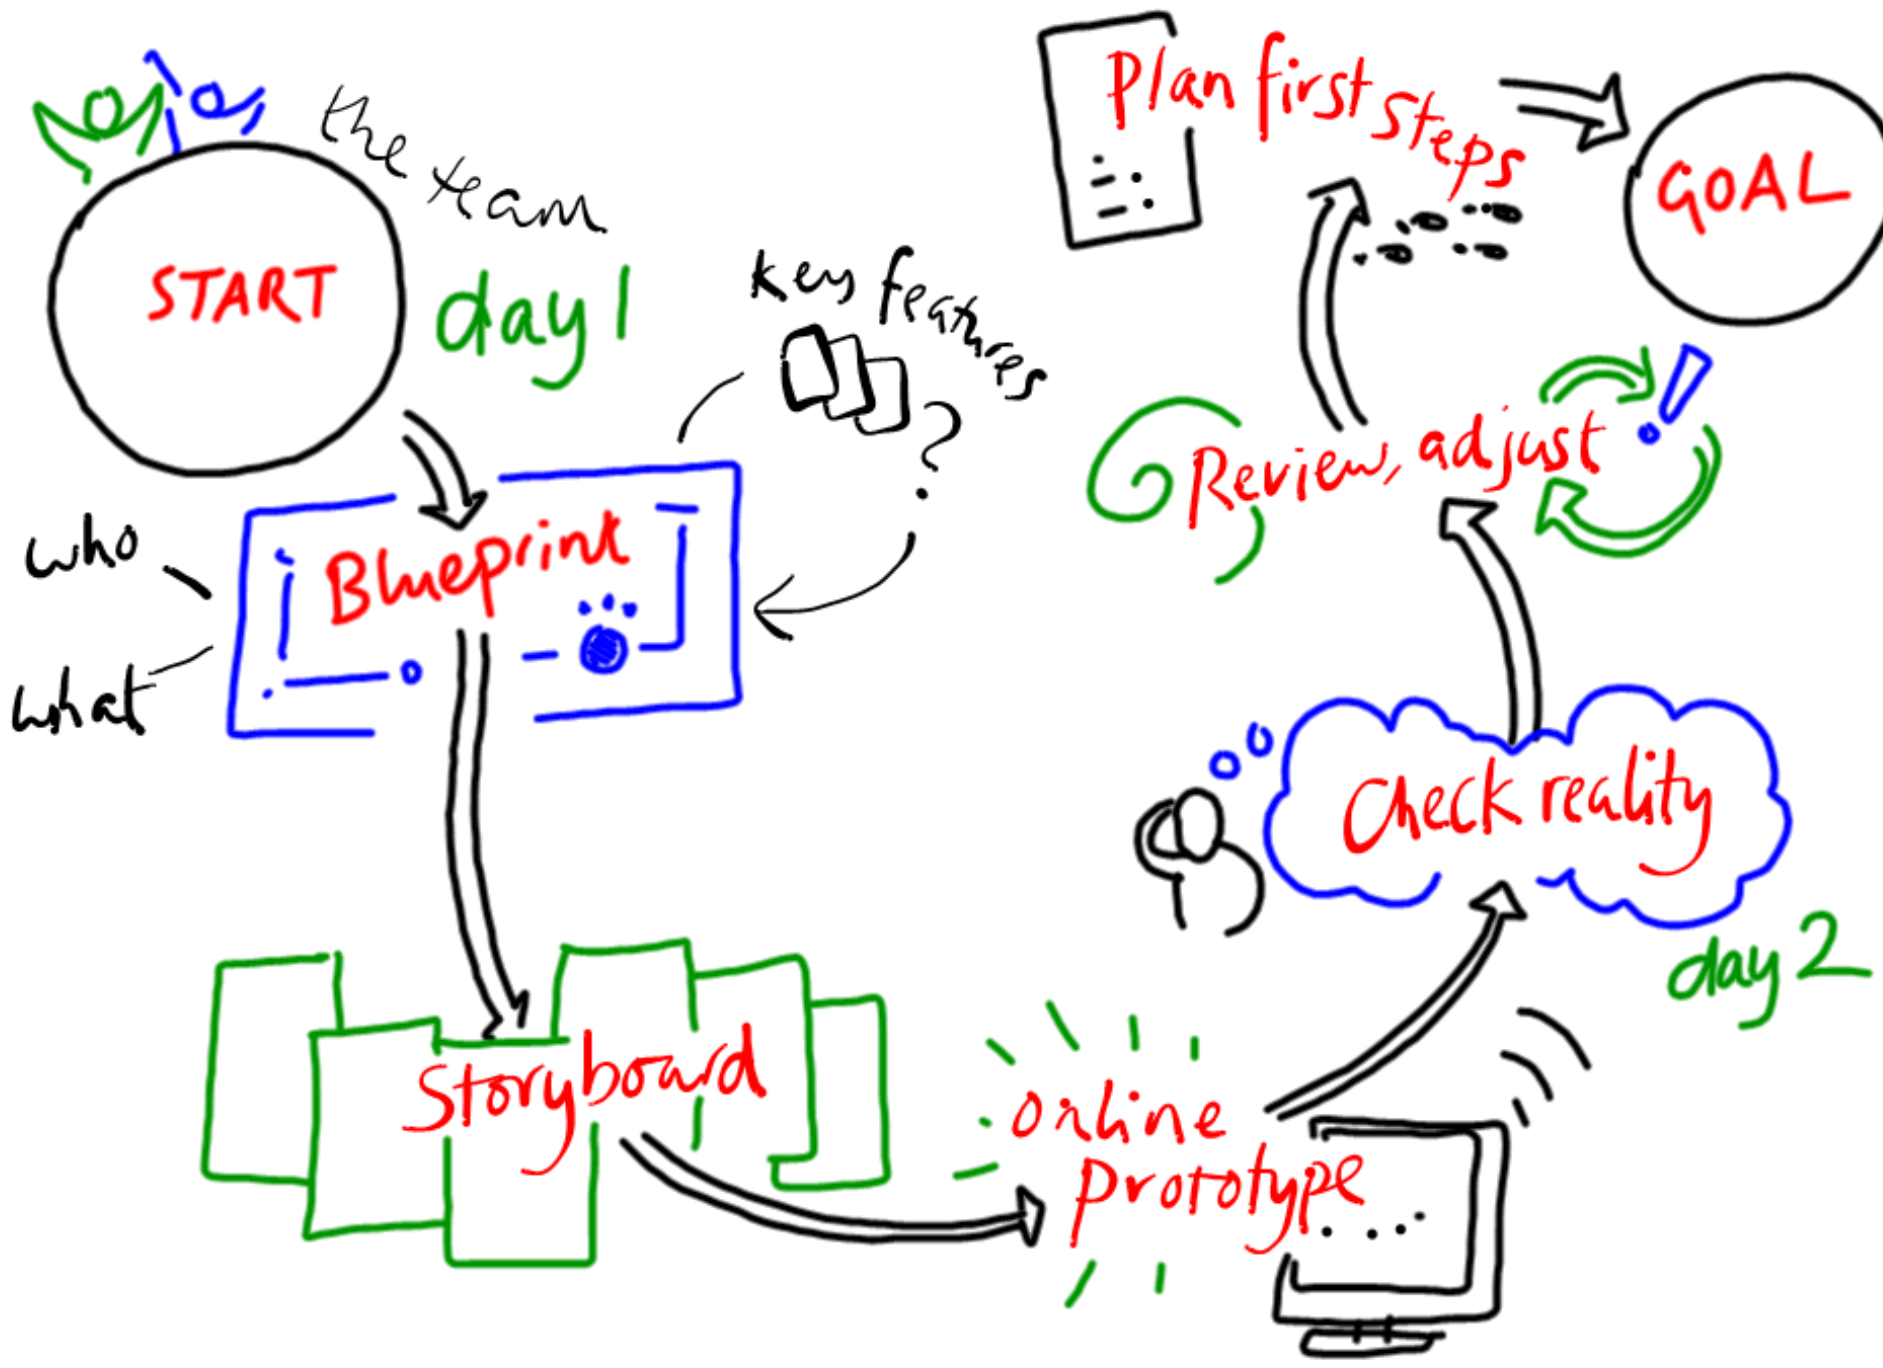 the team
START
day 1
key features
?
who
what
Blueprint
Storyboard
online
prototype
day 2
Check reality
Review, adjust
!
Plan first steps
GOAL